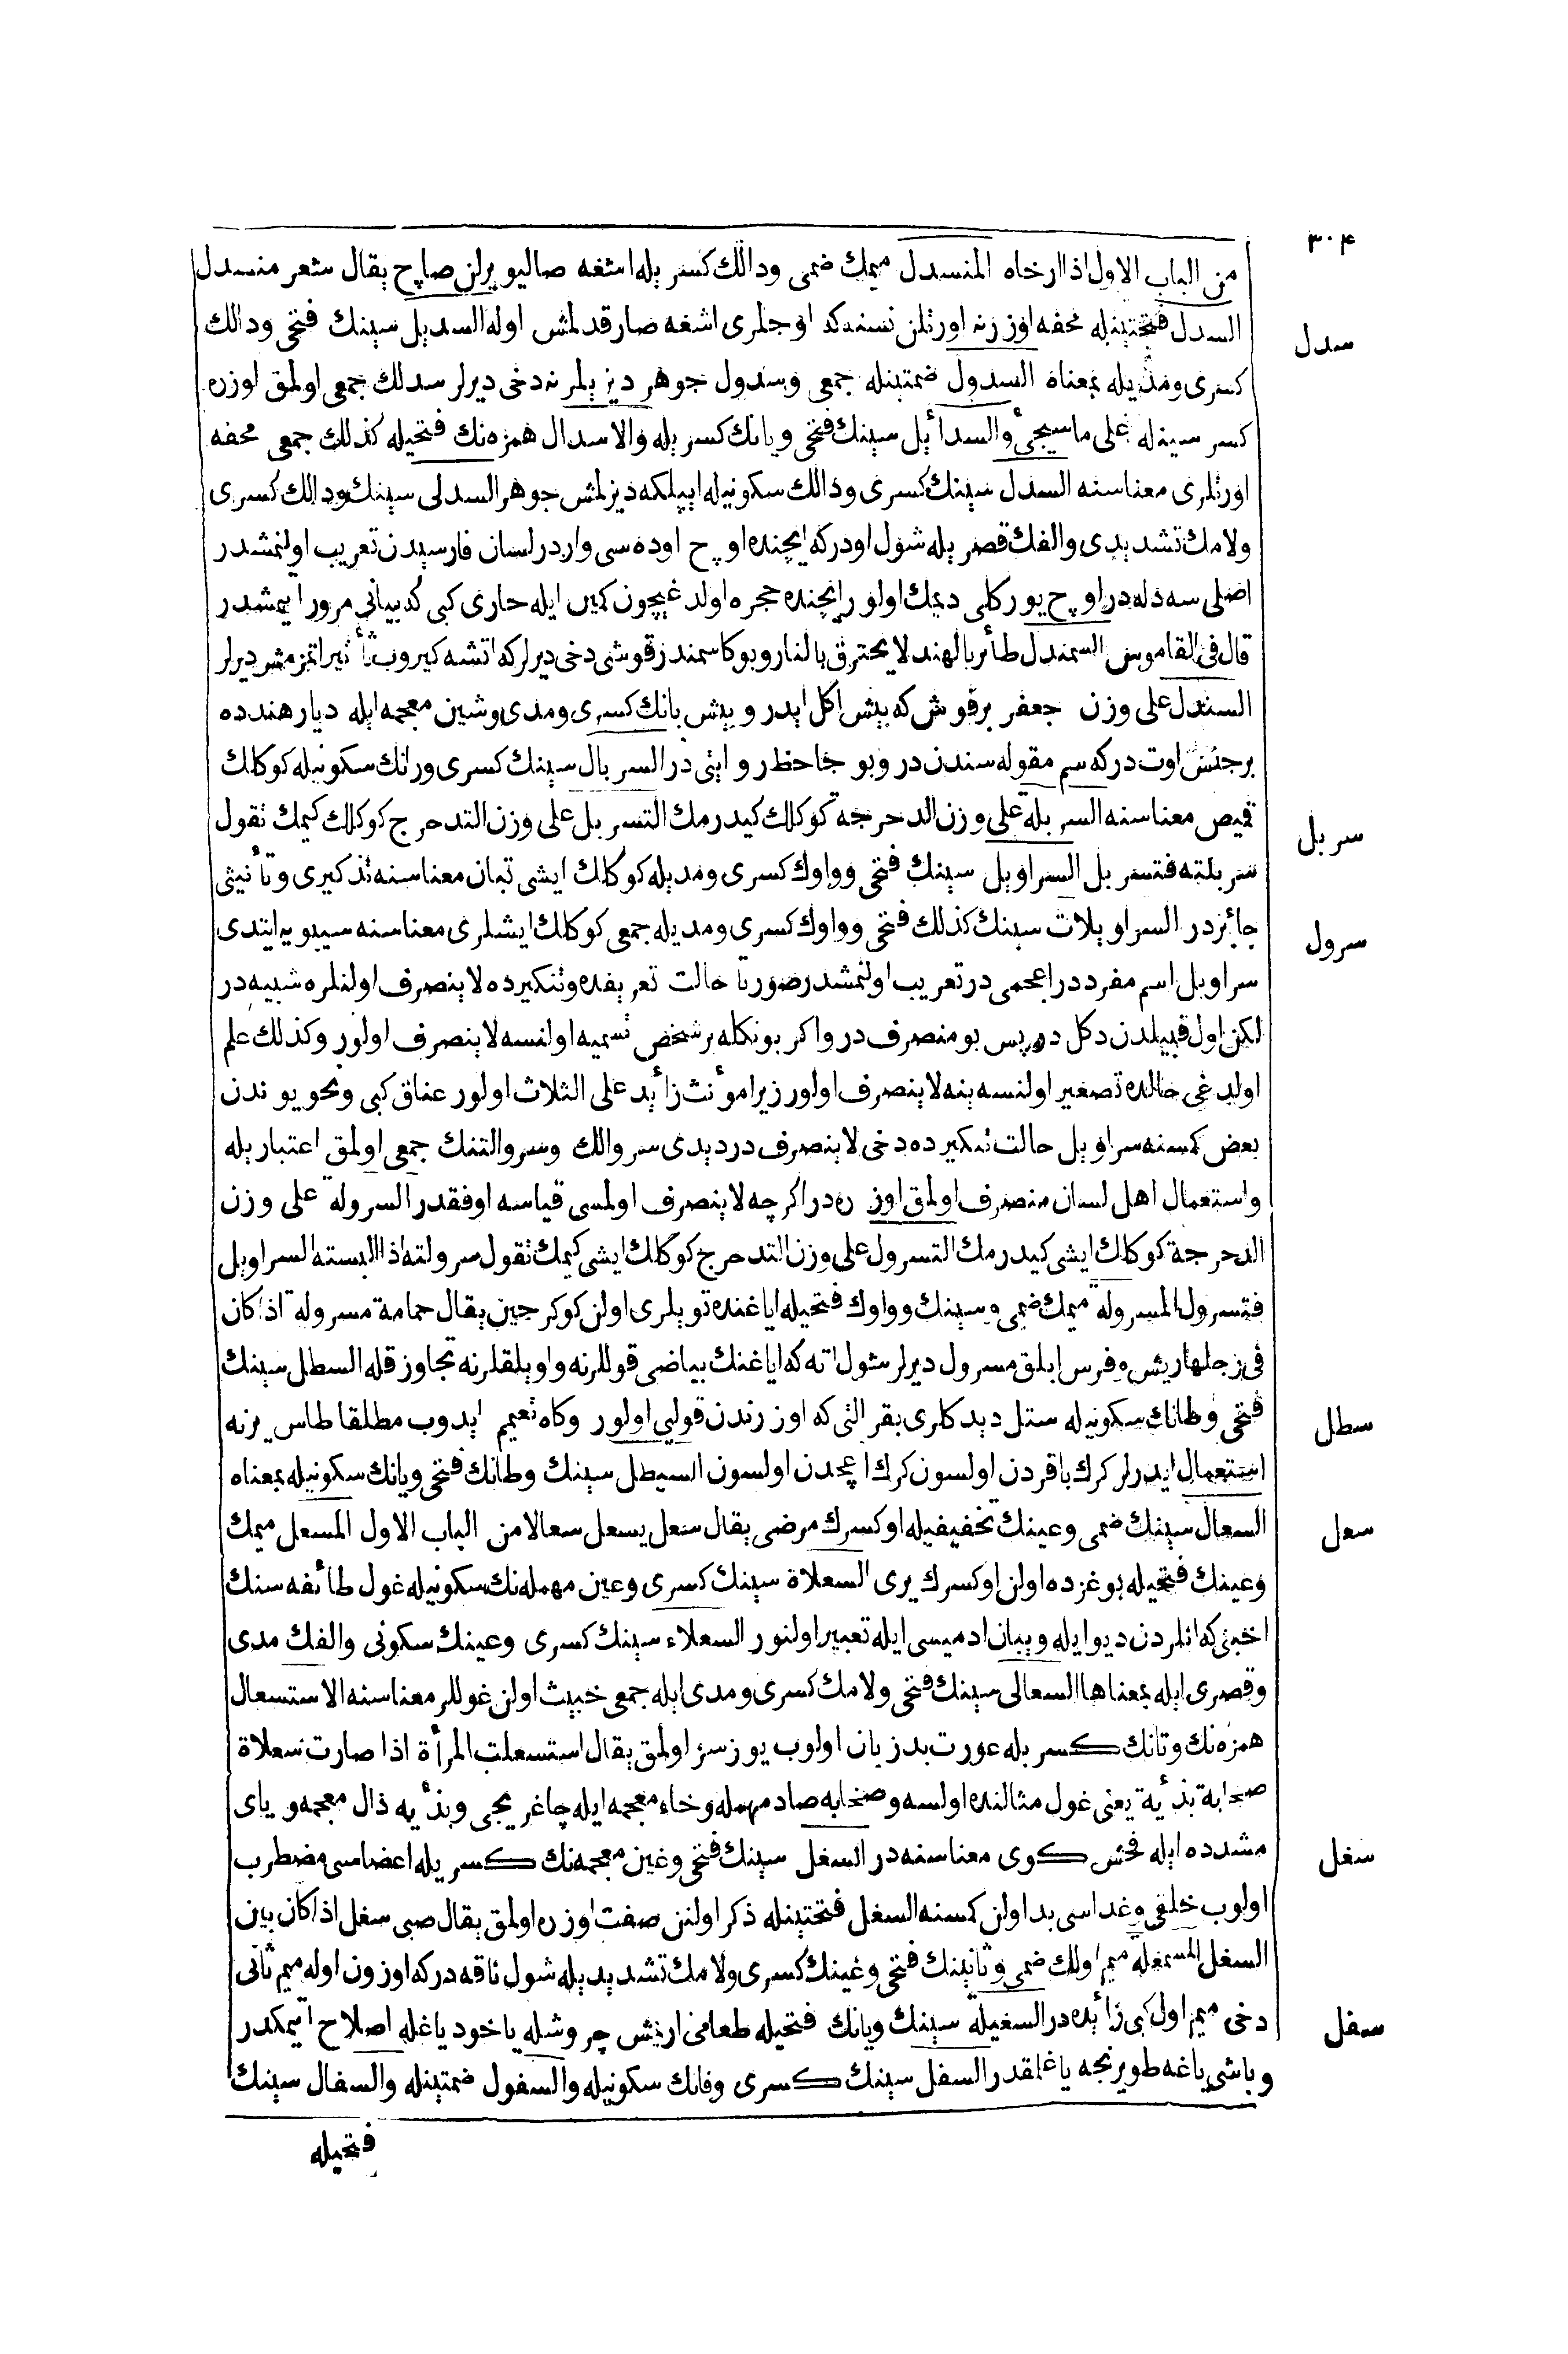 ٣٠۴
من الباب الاول اذا ارخاه المنسدل ميمك ضمى ودالك كسر يله اشغه صاليو يرلن صاچ يقال شعر منسدل
سدل
السدل فتحتينله محفه اوزرنه اورتلن نسنه كه اوجلرى اشغه صارقدلمش اوله السديل سينك فتحى ودالك
كسرى ومد يله بمعناه السدول ضمتينله جمعى وسدول جوهر ديز يلمرنه دخى ديرلر سدلك جمعى اولمق اوزره
كسر سينله على ما سيجئ والسدائل سينك فتحى ويانك كسر يله والاسدال همزه نك فتحيله كذلك جمعى محفه
اورتلرى معناسنه السدل سينك كسرى ودالك سكونيله ايپلكه ديزلمش جوهر السدلى سينك ودالك كسرى
ولامك تشديدى والفك قصر يله شول اودر كه ايچنده اوچ اوده سى واردر لسان فارسيدن تعريب اولنمشدر
اصلى سه دله در اوچ يوركلى ديمك اولور ايچنده حجره اولدغيچون كمين ايله حارى كبى كه بيانى مرور ايتمشدر
قال فى القاموس السمندل طائر بالهند لا يحترق بالنار وبوكا سمندر قوشى دخى ديرلر كه اتشه كيروب تأثير اتمز مش ديرلر
السندل على وزن جعفر بر قوش كه بيش اكل ايدر وبيش بانك كسرى ومدى وشين معجمه ايله ديار هندده
بر جنس اوت در كه سم مقوله سندن در وبو جاحظ روايتى در السربال سينك كسرى ورانك سكونيله كوكلك
سربل
قميص معناسنه السربلة على وزن الدحرجة كوكلك كيدرمك التسربل على وزن التدحرج كوكلك كيمك تقول
سربلته فتسربل السراويل سينك فتحى وواوك كسرى ومديله كوكلك ايشى تبان معناسنه تذكيرى وتأنيثى
سرول
جائزدر السراويلات سينك كذلك فتحى وواوك كسرى ومديله جمعى كوكلك ايشلرى معناسنه سيبويه ايتدى
سراويل اسم مفرددر اعجمى در تعريب اولنمشدر ضورتا حالت تعريفده وتنكيرده لا ينصرف اولنلره شبيه در
لكن اول قبيلدن دكل در پس بو منصرف در واكر بونكله بر شخص تسميه اولنسه لا ينصرف اولور وكذلك علم
اولدغى حالده تصغير اولنسه ينه لا ينصرف اولور زيرا مؤنث زائد على الثلاث اولور عناق كبى ونحويوندن
بعض كمسنه سراويل حالت تنكيرده دخى لا ينصرف در ديدى سروالك وسروالتنك جمعى اولمق اعتباريله
واستعمال اهل لسان منصرف اولمق اوزره در اكرچه لا ينصرف اولمسى قياسه اوفقدر السرولة على وزن
الدحرجة كوكلك ايشى كيدرمك التسرول على وزن التدحرج كوكلك ايشى كيمك تقول سرولته اذا البسته السراويل
فتسرول المسرولة ميمك ضمى وسينك وواوك فتحيله اياغنده تويلرى اولن كوكرجين يقال حمامة مسرولة اذا كان
فى رجليها ريش وفرس ابلق مسرول ديرلر شول اته كه اياغنك بياضى قوللرنه واويلقلرنه تجاوز قله السطل سينك
سطل
فتحى وطانك سكونيله ستل ديدكلرى بقر التى كه اوزرندن قولپى اولور وكاه تعميم ايدوب مطلقا طاس يرنه
استعمال ايدرلر كرك باقردن اولسون كرك اغجدن اولسون السيطل سينك وطانك فتحى ويانك سكونيله بمعناه
سعل
السعال سينك ضمى وعينك تخفيفيله اوكسرك مرضى يقال سعل يسعل سعالا من الباب الاول المسعل ميمك
وعينك فتحيله بوغزده اولن اوكسرك يرى السعلاة سينك كسرى وعين مهمله نك سكونيله غول طائفه سنك
اخبثى كه انلردن ديو ايله ويبان ادميسى ايله تعبير اولنور السعلاء سينك كسرى وعينك سكونى والفك مدى
وقصرى ايله بمعناها السعالى سينك فتحى ولامك كسرى ومدى ايله جمعى خبيث اولن غوللر معناسنه الاستسعال
همزه نك وتانك كسر يله عورت بد زبان اولوب يوزسز اولمق يقال استسعلت المرأة اذا صارت سعلاة
صخابة بذئية يعنى غول مثالنده اولسه وصخابه صاد مهمله وخاء معجمه ايله چاغريجى وبذئيه ذال معجمه و ياى
سغل
مشدده ايله فحش كوى معناسنه در السغل سينك فتحى وغين معجمه نك كسر يله اعضاسى مضطرب
اولوب خلقى وغداسى بد اولن كمسنه السغل فتحتينله ذكر اولنن صفت اوزره اولمق يقال صبى سغل اذا كان بين
السغل المسمغلة ميم اولك ضمى وثانينك فتحى وغينك كسرى ولامك تشديديله شول ناقه در كه اوزون اوله ميم ثانى
سفل
دخى ميم اول كبى زائده در السغيلة سينك ويانك فتحيله طعامى اريتش چروشله ياخود ياغله اصلاح اتيمكدر
وباشى ياغه طويرنجه ياغلمقدر السفل سينك كسرى وفانك سكونيله والسفول ضمتينله والسفال سينك
فتحيله